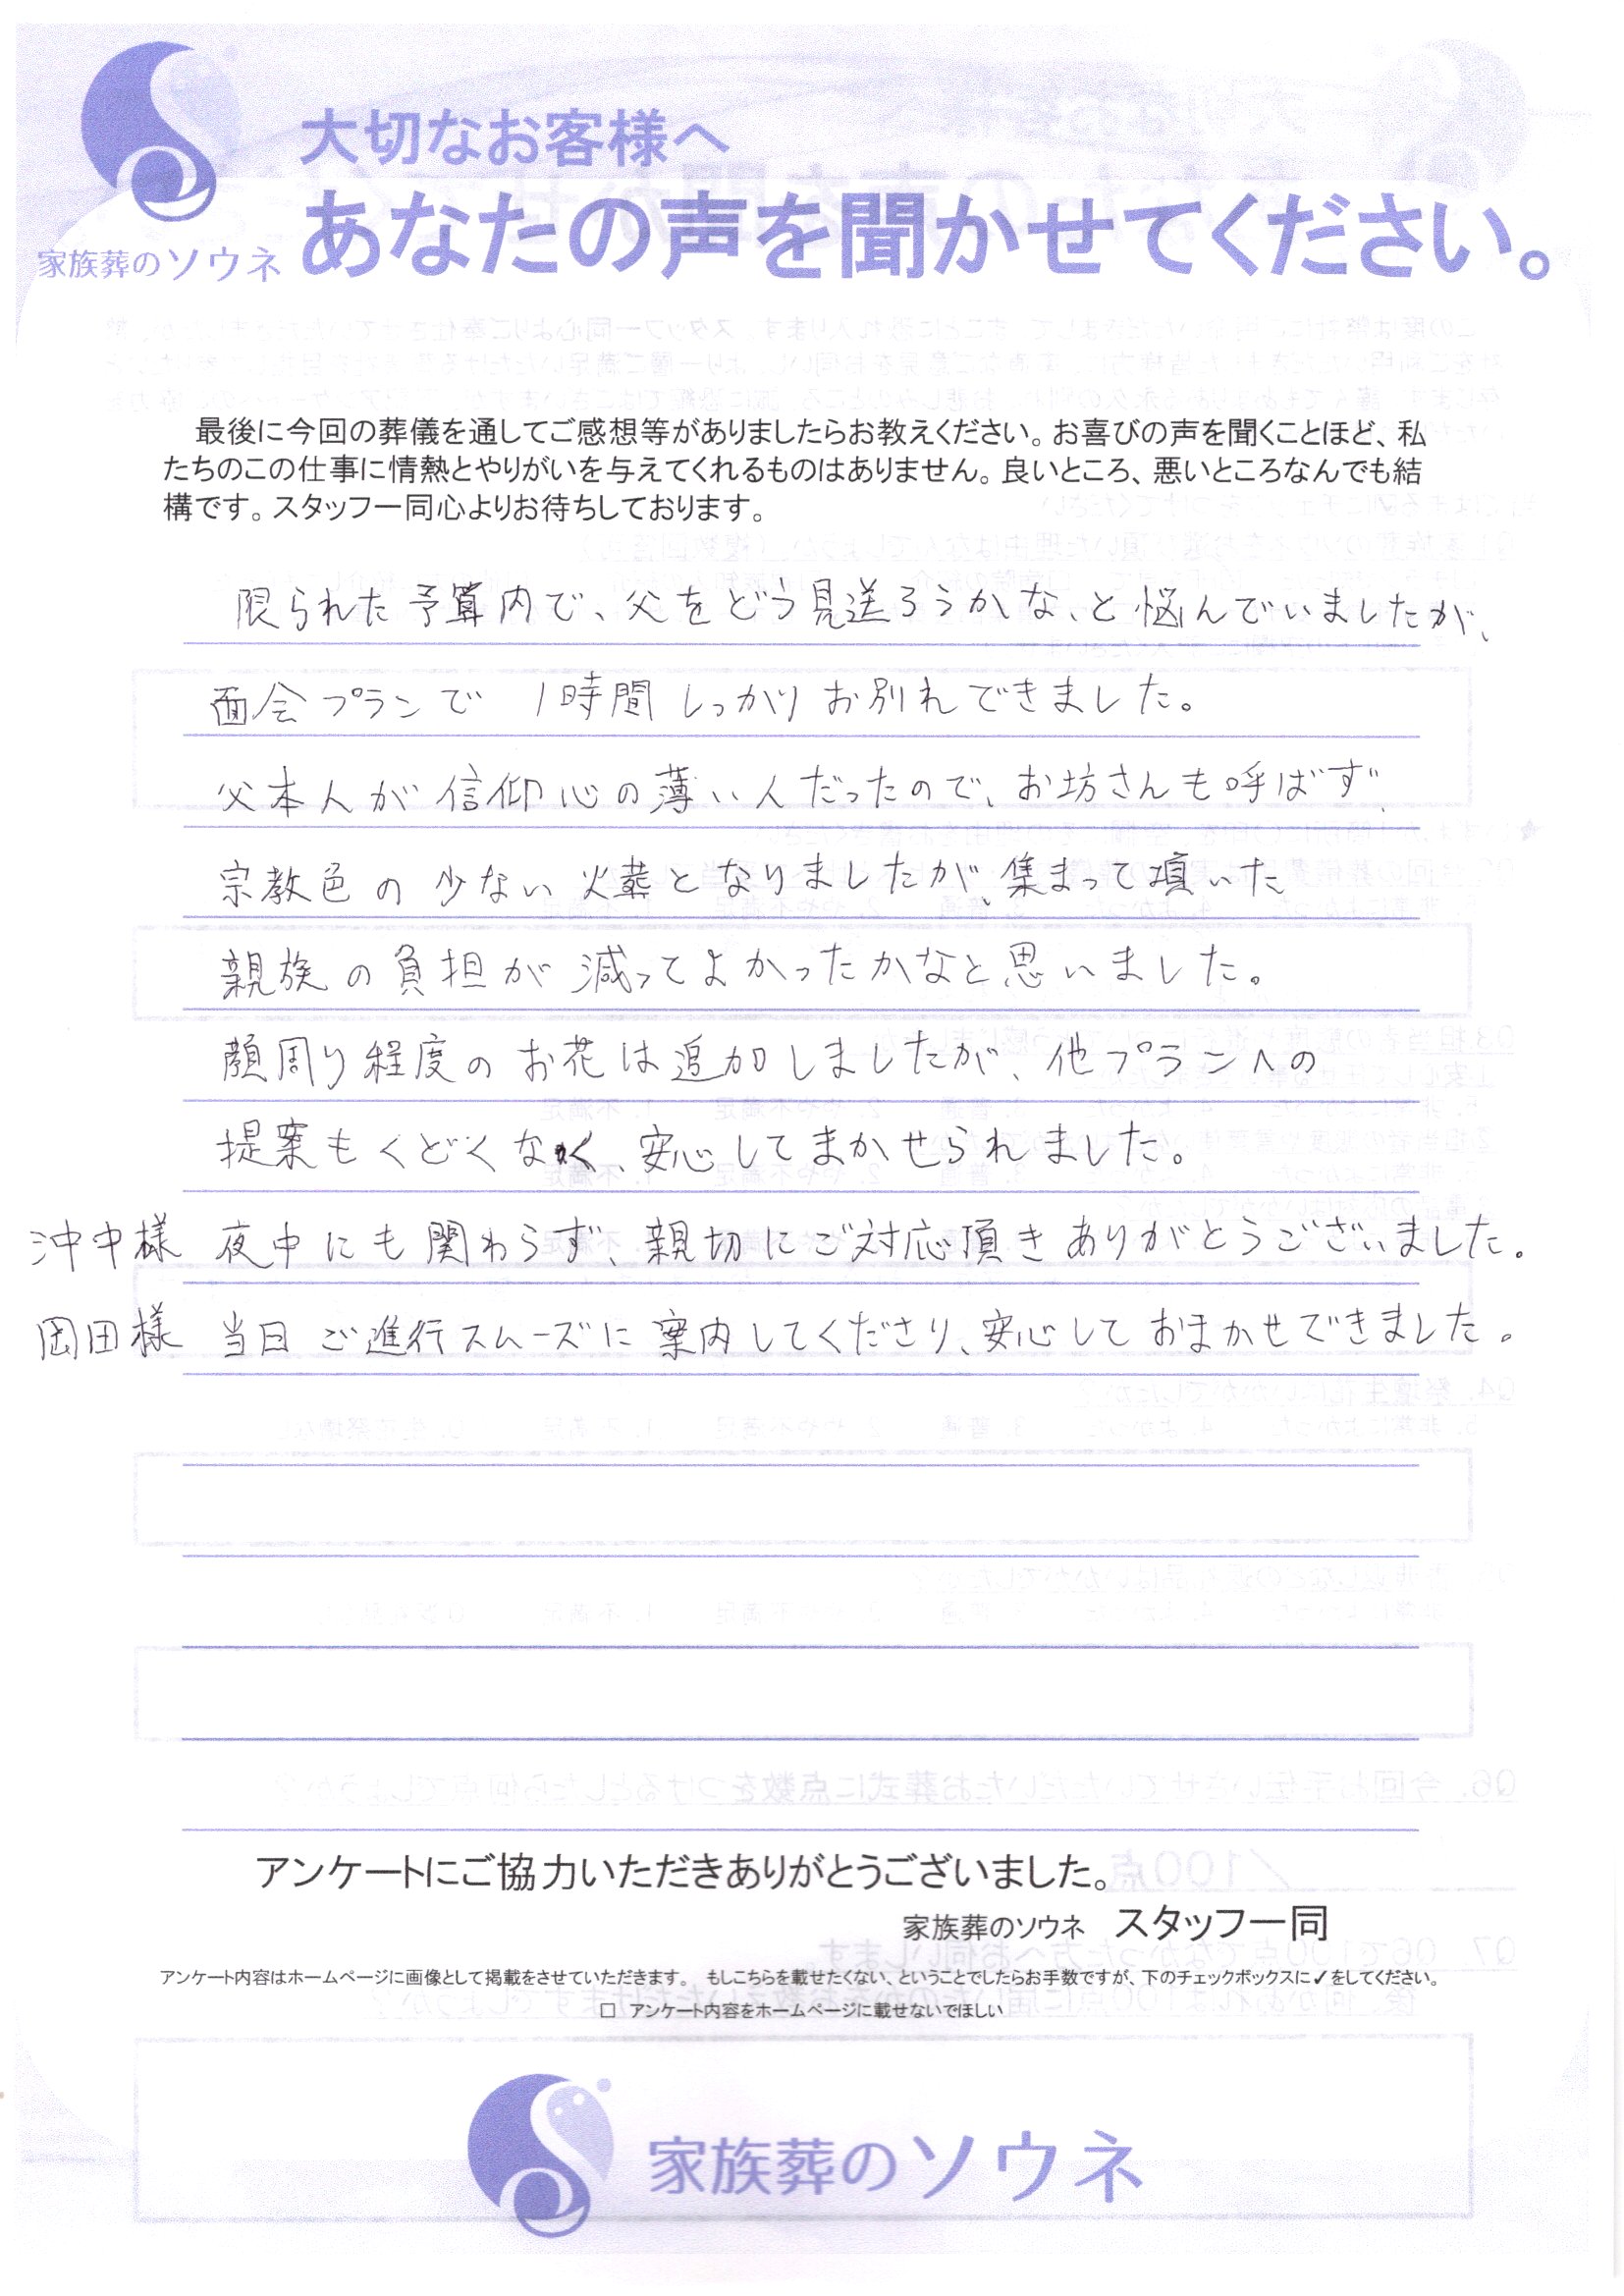 大切なお客様へ
家族葬のソウネ
あなたの声を聞かせてください。
最後に今回の葬儀を通してご感想等がありましたらお教えください。お喜びの声を聞くことほど、私
たちのこの仕事に情熱とやりがいを与えてくれるものはありません。良いところ、悪いところなんでも結
構です。スタッフ一同心よりお待ちしております。
限られた予算内で、父をどう見送ろうかな、と悩んでいましたが、
面会プランで 1時間しっかりお別れできました。
父本人が信仰心の薄い人だったので、お坊さんも呼ばず、
宗教色の少ない火葬となりましたが、集まって頂いた
親族の負担が減ってよかったかなと思いました。
顔周り程度のお花は追加しましたが、他プランへの
提案もくどくなく、安心してまかせられました。
沖中様 夜中にも関わらず、親切にご対応頂きありがとうございました。
岡田様 当日ご進行スムーズに案内してくださり、安心しておまかせできました。
アンケートにご協力いただきありがとうございました。
家族葬のソウネ スタッフ一同
アンケート内容はホームページに画像として掲載をさせていただきます。 もしこちらを載せたくない、ということでしたらお手数ですが、下のチェックボックスに✓をしてください。
□ アンケート内容をホームページに載せないでほしい
家族葬のソウネ